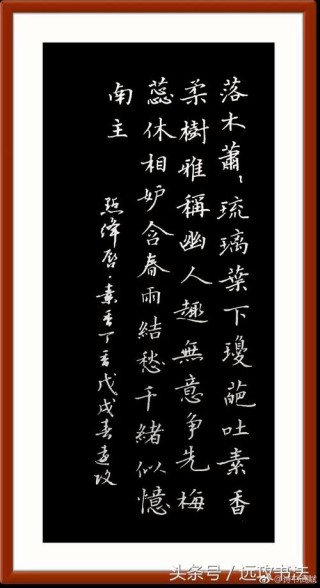 落木蕭〻琉璃葉下瓊葩吐素香
柔樹雅稱幽人趣無意争先梅
蕊休相妒含春雨結愁千緒似憶
南主
點绛唇·素香丁香戊戌春遠攻
头条号／远攻书法